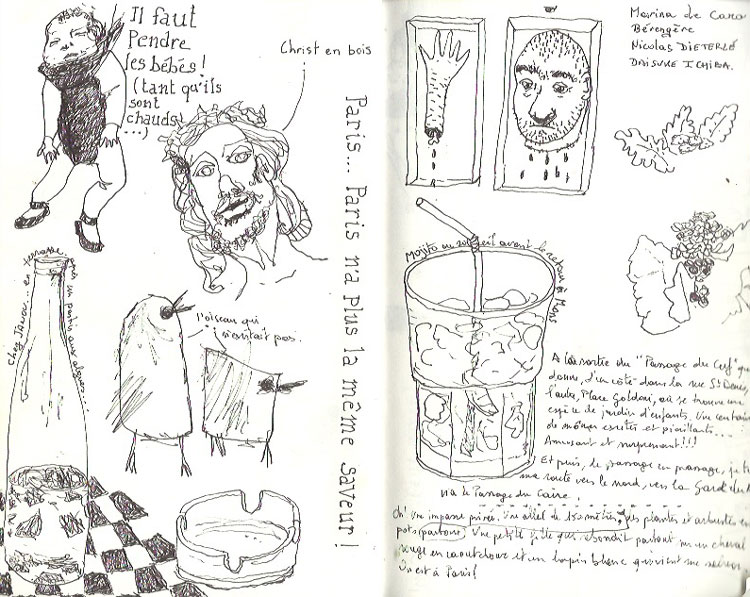 Il faut
Pendre
les bébés!
(tant qu'ils
sont
chauds
...)
Christ en bois
Paris... Paris n'a plus la même saveur!
Chez Janou... en terrasse, un pastis aux algues...
l'oiseau qui
n'existait pas.
Marina de Caro
Bérengère
Nicolas DIETERLÉ
DAISUKE ICHIBA.
Mojito au soleil avant le retour à Mons
A la sortie du "Passage du Cerf" qui
donne, d'un côté dans la rue St Denis,
l'autre, Place Goldoni, où se trouve une
espèce de jardin d'enfants. Une centaine
de mômes excités et piaillants...
Amusant et surprenant!!!
Et puis, de passage en passage, je
ma route vers le nord, vers la Gare du
via le Passage du Caire.
Oh! Une impasse privée. Une allée de 150 mètres, des plantes et arbustes en
pots partout. Une petite fille qui rebondit partout sur un cheval
rouge en caoutchouc et un lapin blanc
On est à Paris!